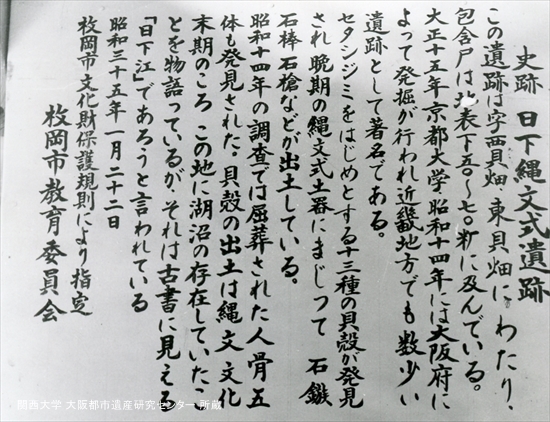 史跡 日下縄文式遺跡
この遺跡は字西貝畑、東貝畑にわたり、
包含层は地表下五〇～七〇糎に及んでいる。
大正十五年京都大学 昭和十四年には大阪府に
よって発掘が行われ近畿地方でも数少い
遺跡として著名である。
セタシジミをはじめとする十三種の貝殻が発見
され 晩期の縄文式土器にまじつて 石鏃
石棒 石槍などが出土している。
昭和十四年の調査では屈葬された人骨五
体も発見された。貝殻の出土は縄文文化
末期のころ この地に湖沼の存在していたこ
とを物語っているが、それは古書に見える
「日下江」であろうと言われている
昭和三十五年一月二十二日
枚岡市文化財保護規則により指定
枚岡市教育委員会
関西大学 大阪都市遺産研究センター 所蔵